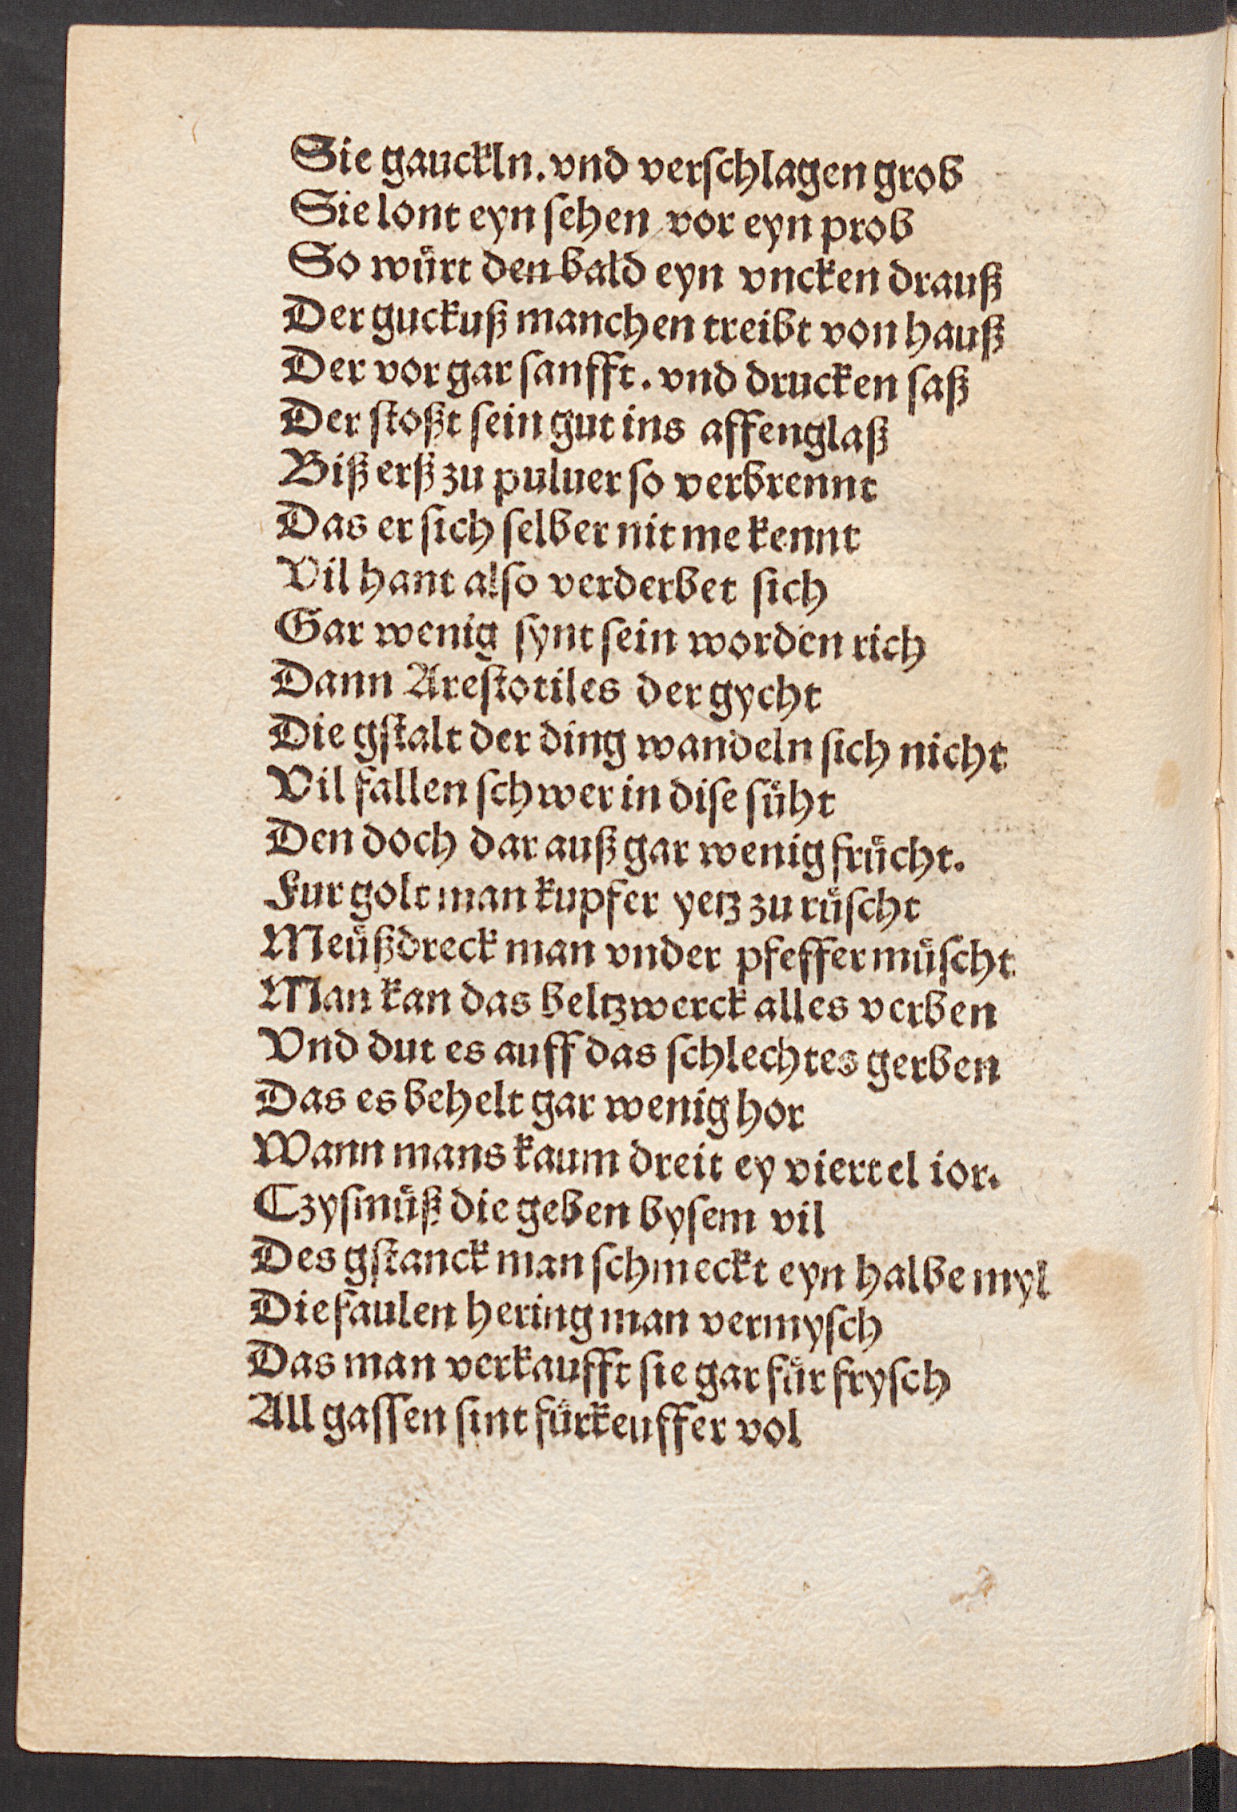 Sie gauckln. vnd verschlagen grob
Sie lont eyn sehen vor eyn prob
So wuͤrt den bald eyn vncken drauß
Der guckuß manchen treibt von hauß
Der vor gar sanfft. vnd drucken saß
Der stoßt sein gut ins affenglaß
Biß erß zu puluer so verbrennt
Das er sich selber nit me kennt
Vil hant also verderbet sich
Gar wenig synt sein worden rich
Dann Arestotiles der gycht
Die gstalt der ding wandeln sich nicht
Vil fallen schwer in dise suͤht
Den doch dar auß gar wenig fruͤcht.
Fur golt man kupfer yetz zu ruͤscht
Meuͤßdreck man vnder pfeffer muͤscht
Man kan das beltzwerck alles verben
Vnd dut es auff das schlechtes gerben
Das es behelt gar wenig hor
Wann mans kaum dreit ey viertel ior.
Czysmuͤß die geben bysem vil
Des gstanck man schmeckt eyn halbe myl
Die faulen hering man vermysch
Das man verkaufft sie gar fuͤr frysch
All gassen sint fuͤrkeuffer vol